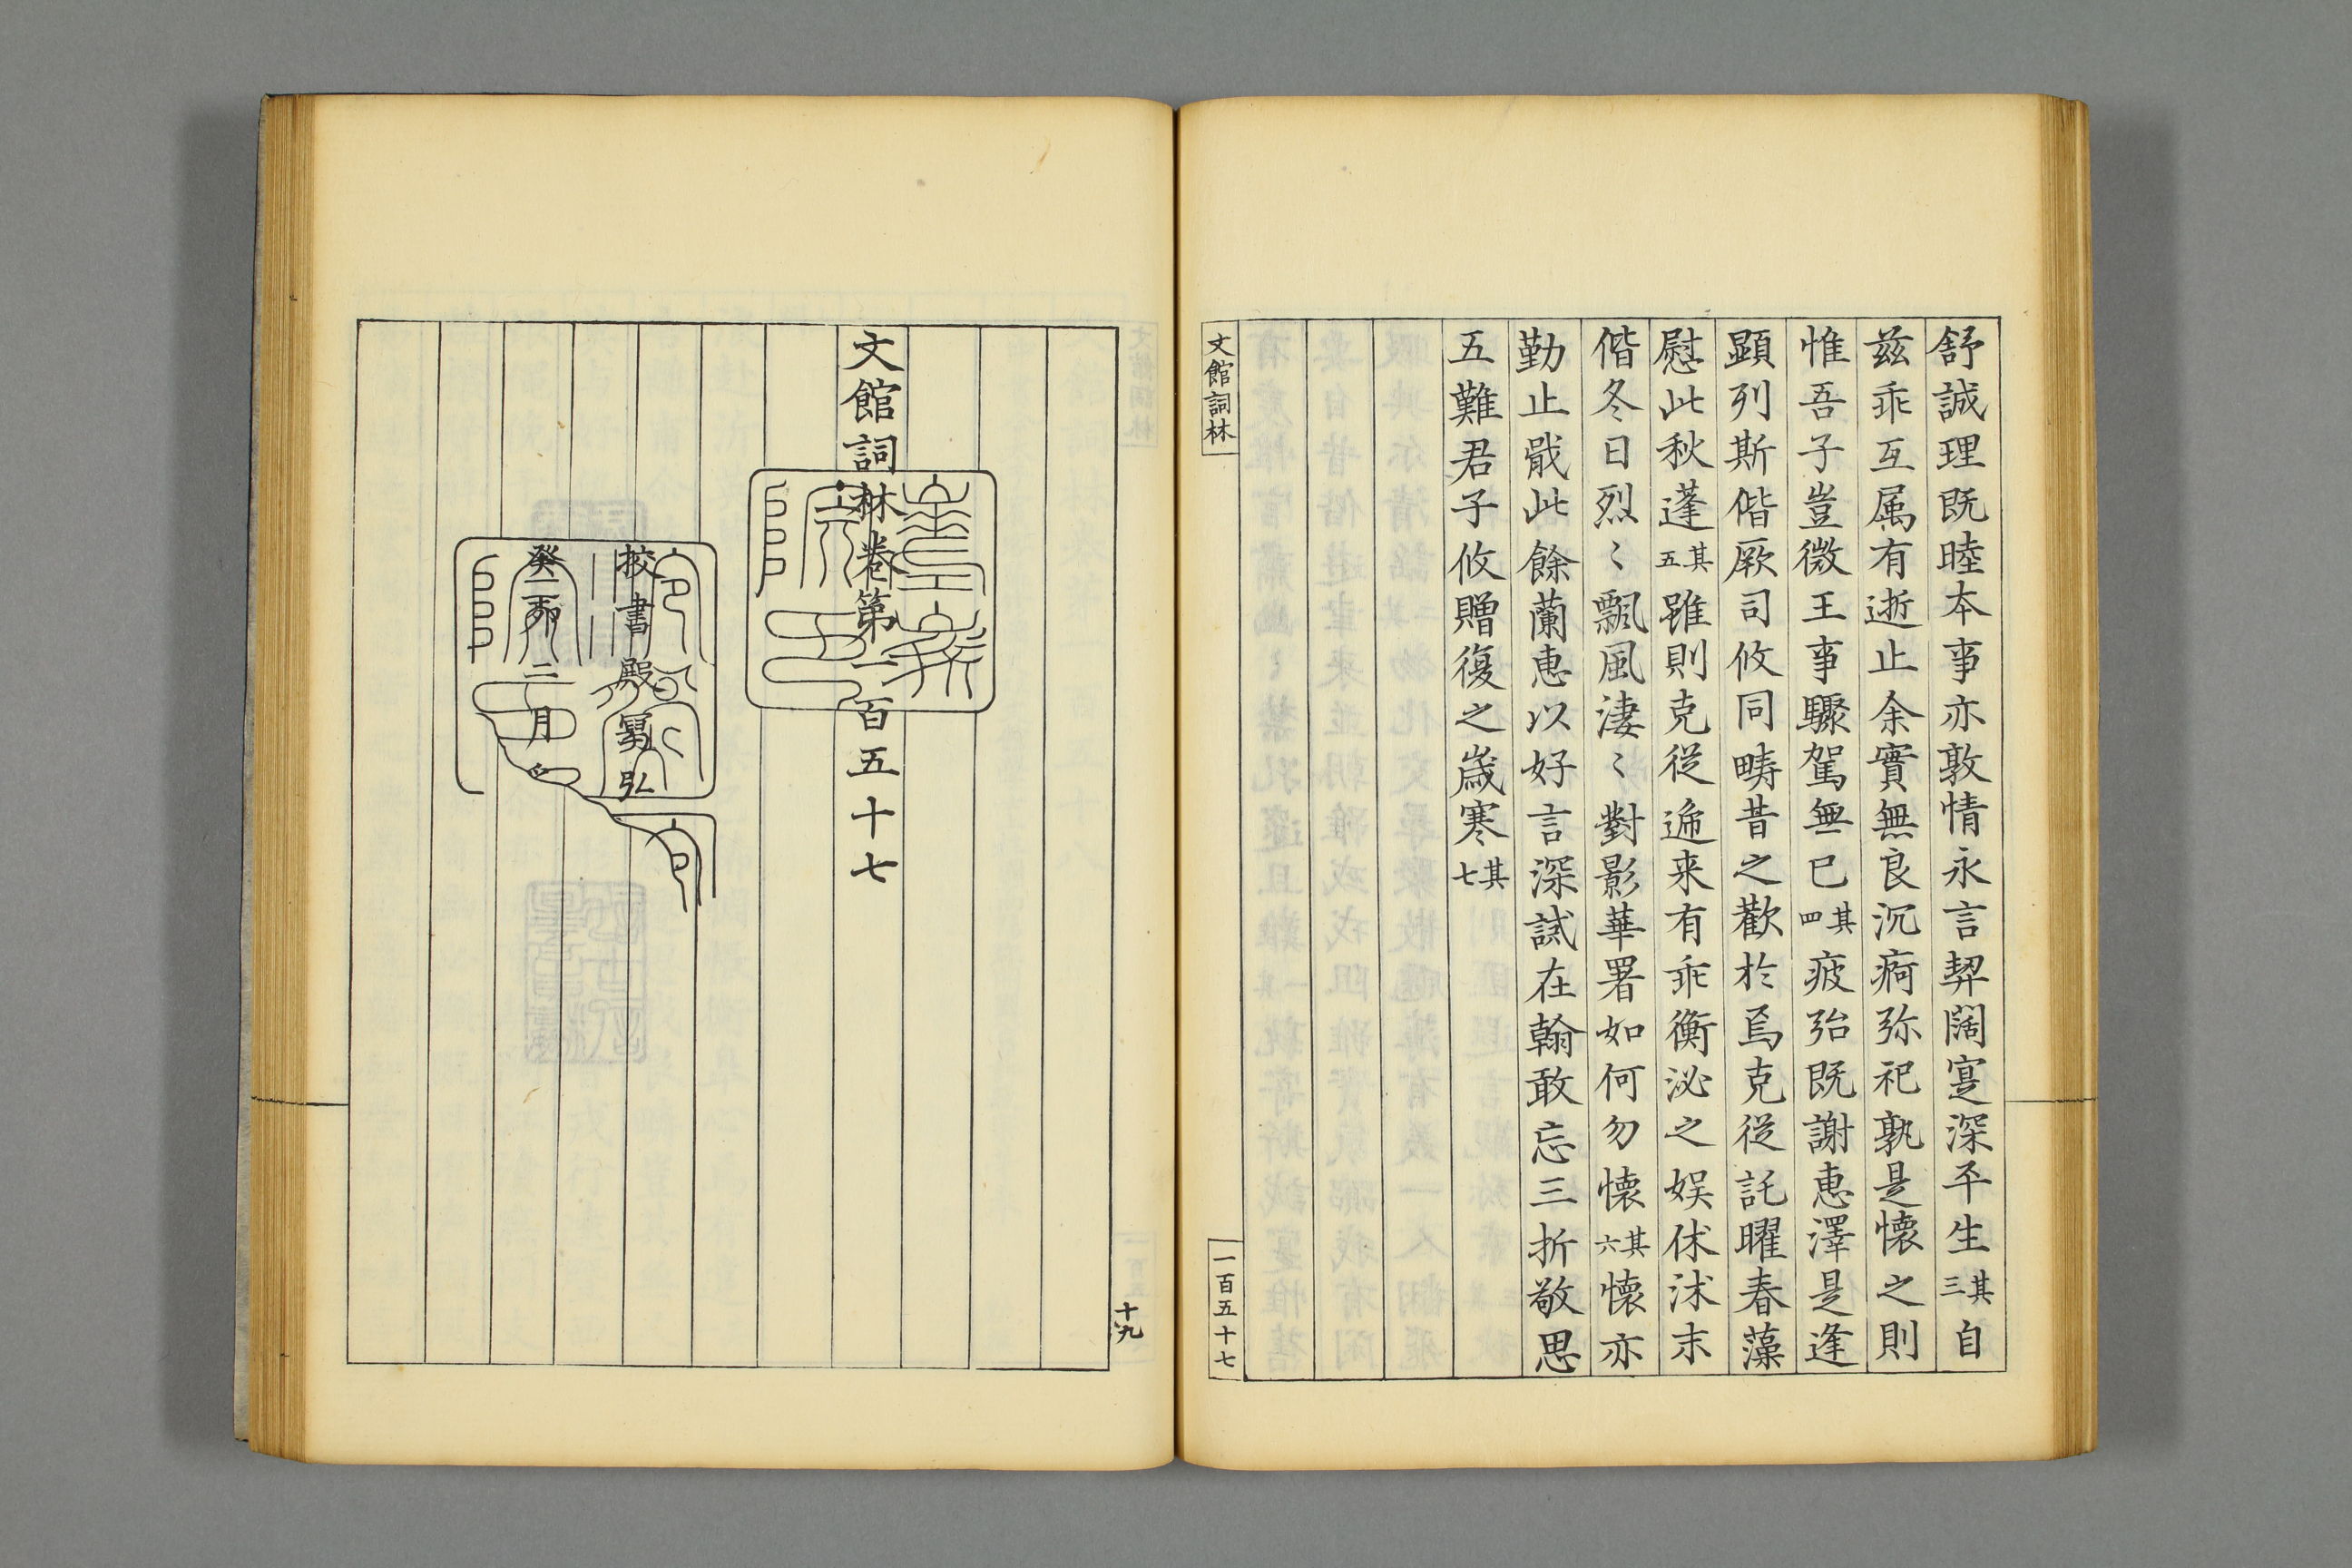 舒誠理既睦本事亦敦情永言契闊寔深平生其三自
兹乖互属有逝止余實無良沉痾弥祀孰是懷之則
惟吾子豈微王事驟駕無已其四疲殆既謝惠澤是逢
顕列斯偕厥司攸同疇昔之歡於焉克從託曜春藻
慰此秋蓬其五雖則克從逓来有乖衡泌之娱休沭末
偕冬日烈〻飄風淒〻對影華署如何勿懷其六懷亦
勤止戢此餘蘭惠以好言深誡在翰敢忘三折敬思
五難君子攸贈復之歳寒其七
文館詞林
一百五十七
十九
文館詞林卷第一百五十七
挍書殿寫弘
癸卯二月